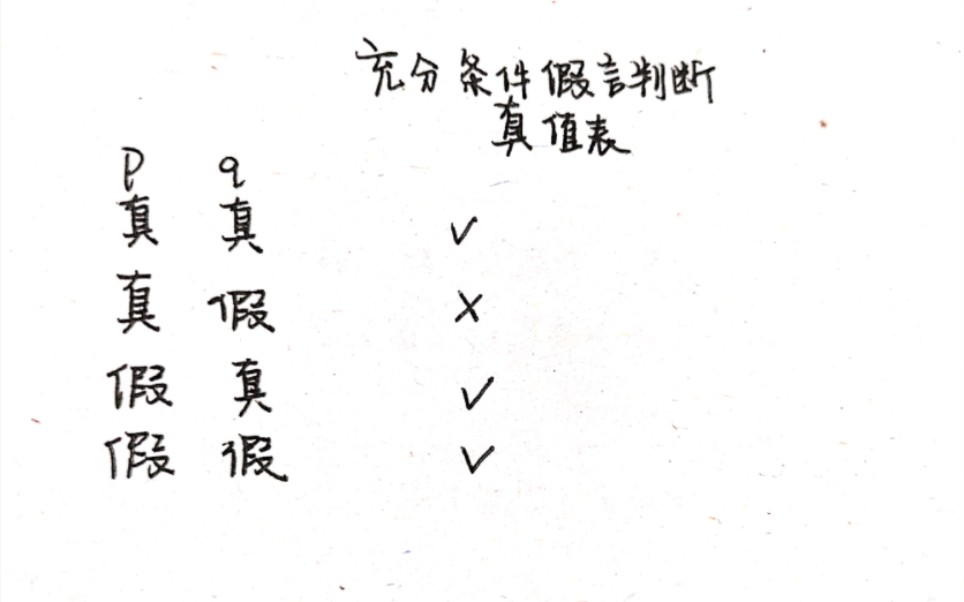 充分条件假言判断
真值表
p q
真 真 ✓
真 假 ×
假 真 ✓
假 假 ✓